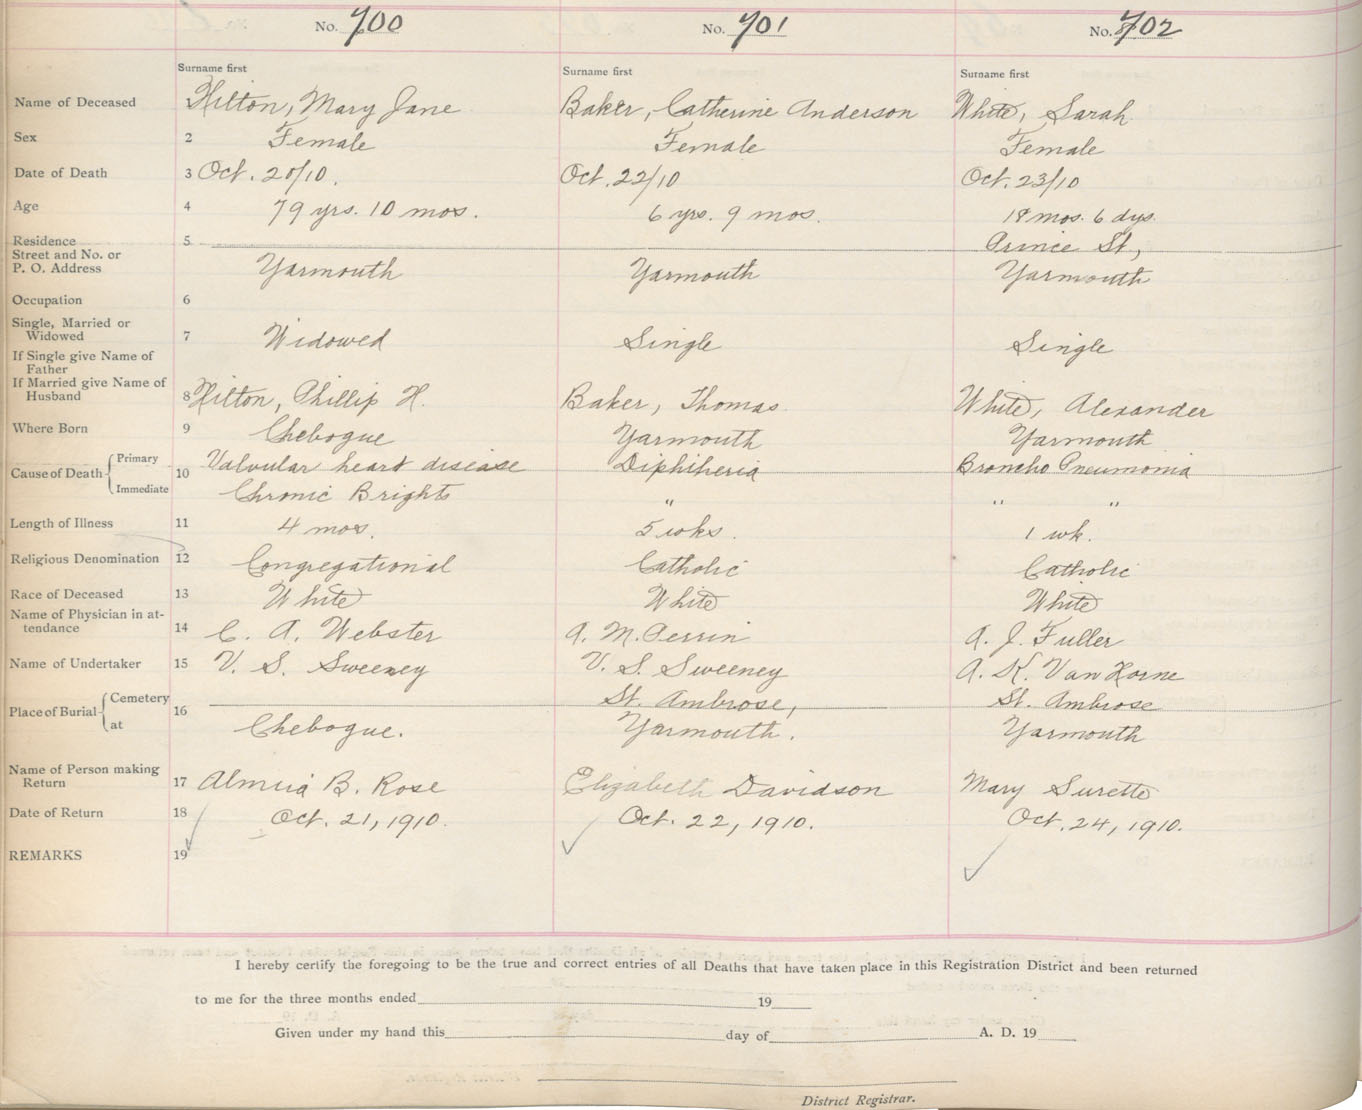 No. 700 No. 701 No. 702
Surname first Surname first Surname first
Name of Deceased Hilton, Mary Jane Baker, Catherine Anderson White, Sarah
Sex 2 Female Female Female
Date of Death 3 Oct. 20/10. Oct. 22/10 Oct. 23/10
Age 4 79 yrs. 10 mos. 6 yrs. 9 mos. 18 mos. 6 dys.
Residence 5 Prince St,
Street and No. or
P. O. Address Yarmouth Yarmouth Yarmouth
Occupation 6
Single, Married or
Widowed 7 Widowed Single Single
If Single give Name of
Father
If Married give Name of
Husband 8 Hilton, Phillip H. Baker, Thomas White, Alexander
Where Born 9 Chebogue Yarmouth Yarmouth
Cause of Death Primary 10 Valvular heart disease Diphtheria Broncho Pneumonia
Immediate Chronic Brights " " "
Length of Illness 11 4 mos. 5 wks. 1 wk.
Religious Denomination 12 Congregational Catholic Catholic
Race of Deceased 13 White White White
Name of Physician in at-
tendance 14 C. A. Webster A. M. Perrin A. J. Fuller
Name of Undertaker 15 V. S. Sweeney V. S. Sweeney A. K. Van Horne
Place of Burial Cemetery 16 St. Ambrose, St. Ambrose
at Chebogue. Yarmouth. Yarmouth
Name of Person making
Return 17 B. Rose Elizabeth Davidson Mary Surette
Date of Return 18 Oct. 21, 1910. Oct. 22, 1910. Oct. 24, 1910.
REMARKS 19
I hereby certify the foregoing to be the true and correct entries of all Deaths that have taken place in this Registration District and been returned
to me for the three months ended 19
Given under my hand this day of A. D. 19
District Registrar.